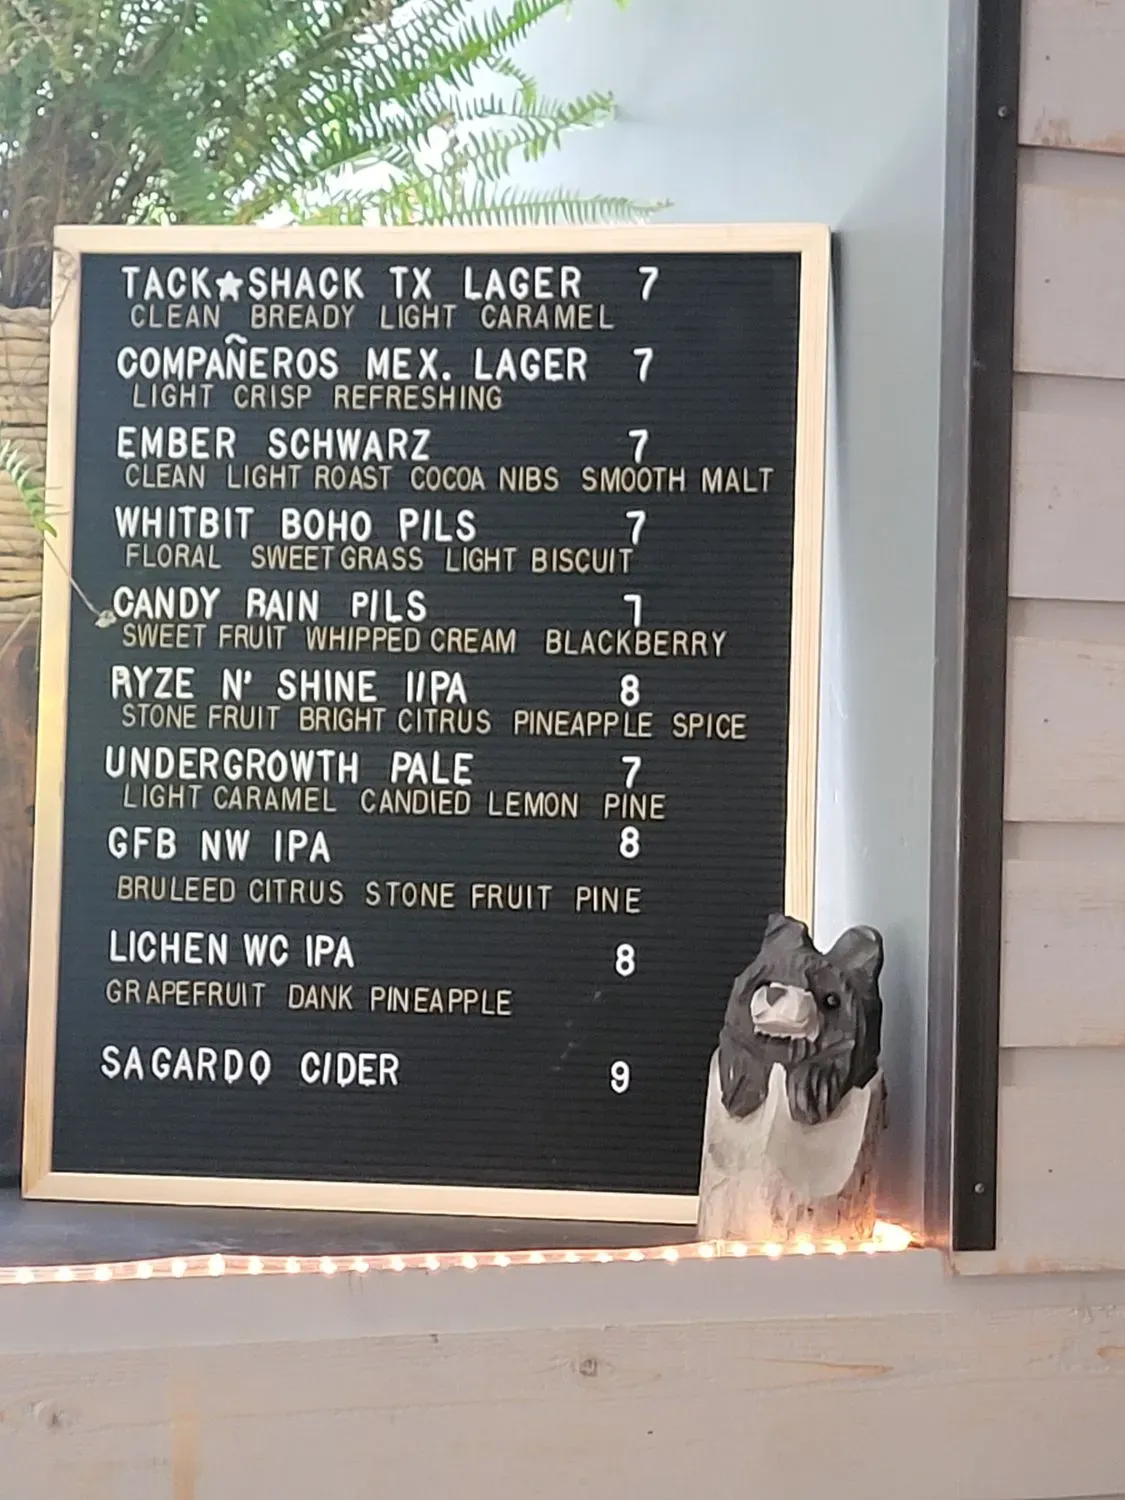 TACK★SHACK TX LAGER 7
CLEAN BREADY LIGHT CARAMEL
COMPAÑEROS MEX. LAGER 7
LIGHT CRISP REFRESHING
EMBER SCHWARZ 7
CLEAN LIGHT ROAST COCOA NIBS SMOOTH MALT
WHITBIT BOHO PILS 7
FLORAL SWEETGRASS LIGHT BISCUIT
CANDY RAIN PILS 7
SWEET FRUIT WHIPPED CREAM BLACKBERRY
RYZE N' SHINE I/PA 8
STONE FRUIT BRIGHT CITRUS PINEAPPLE SPICE
UNDERGROWTH PALE 7
LIGHT CARAMEL CANDIED LEMON PINE
GFB NW IPA 8
BRULEED CITRUS STONE FRUIT PINE
LICHEN WC IPA 8
GRAPEFRUIT DANK PINEAPPLE
SAGARDO CIDER 9